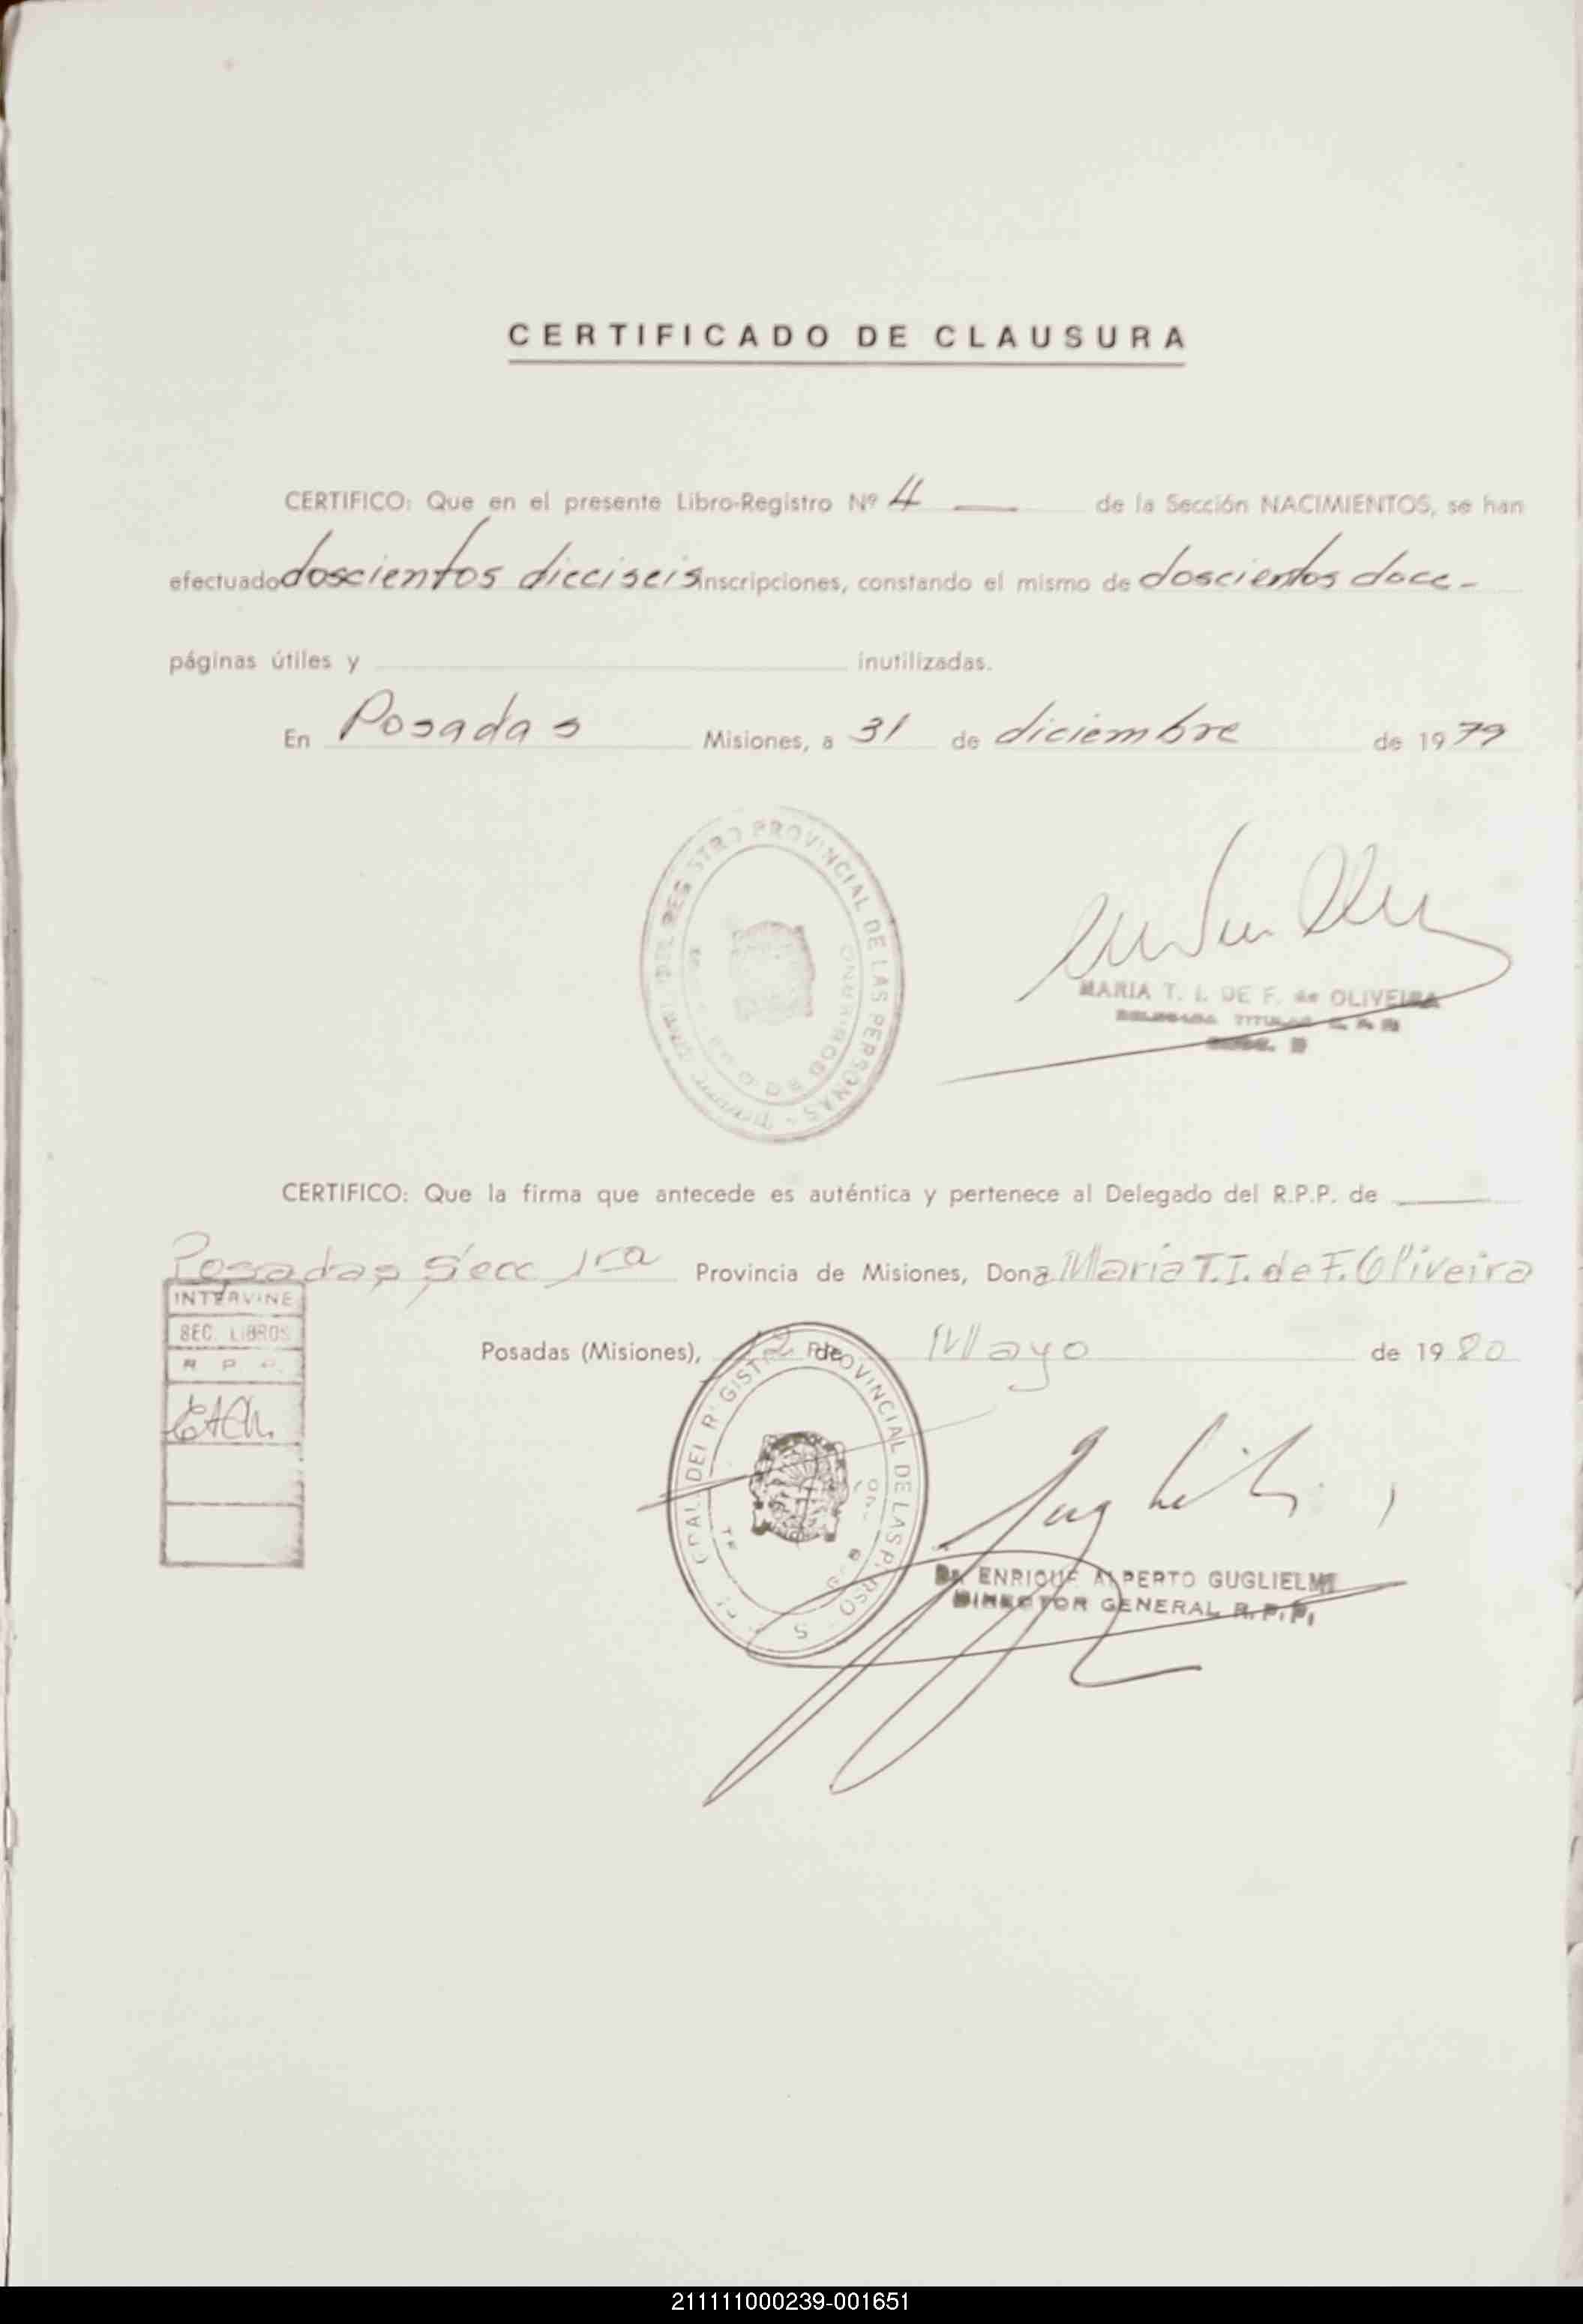 CERTIFICADO DE CLAUSURA
CERTIFICO: Que en el presente Libro-Registro Nº 4 — de la Sección NACIMIENTOS, se han
efectuado doscientos dieciseis inscripciones, constando el mismo de doscientos doce -
páginas útiles y inutilizadas.
En Posadas Misiones, a 31 de diciembre de 1979
REGISTRO PROVINCIAL DE LAS PERSONAS
MARIA T. I. DE F. de OLIVEIRA
TITULAR
CERTIFICO: Que la firma que antecede es auténtica y pertenece al Delegado del R.P.P. de —
Posadas Secc 1ra Provincia de Misiones, Dona Maria T.I. de F. Oliveira
INTERVINE
SEC. LIBROS
R P P.
Posadas (Misiones), 12 de Mayo de 1980
DEL REGISTRO PROVINCIAL DE LAS PERSO
Dr. ENRIQUE ALBERTO GUGLIELMI
DIRECTOR GENERAL R.P.P.
211111000239-001651